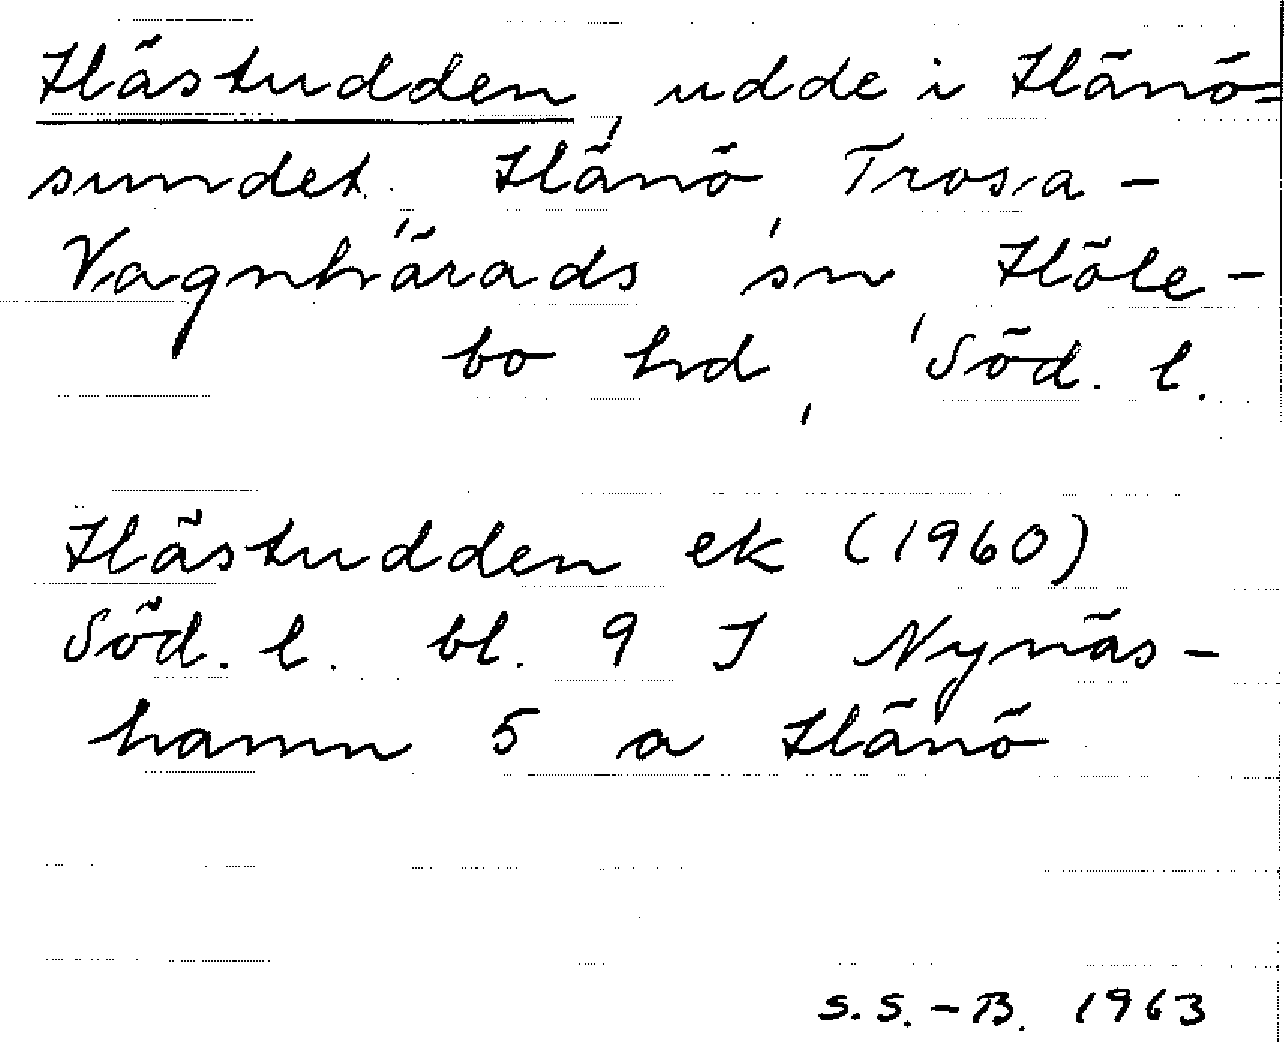 Hästudden, udde i Hånö=
sundet, Hånö, Trosa-
Vagnhärads sn, Hölebo-
bo hd, Söd. l.
Hästudden ek (1960)
Söd. l. bl. 9 J Nynäs-
hamn 5 a Hånö
S.S.-B. 1963